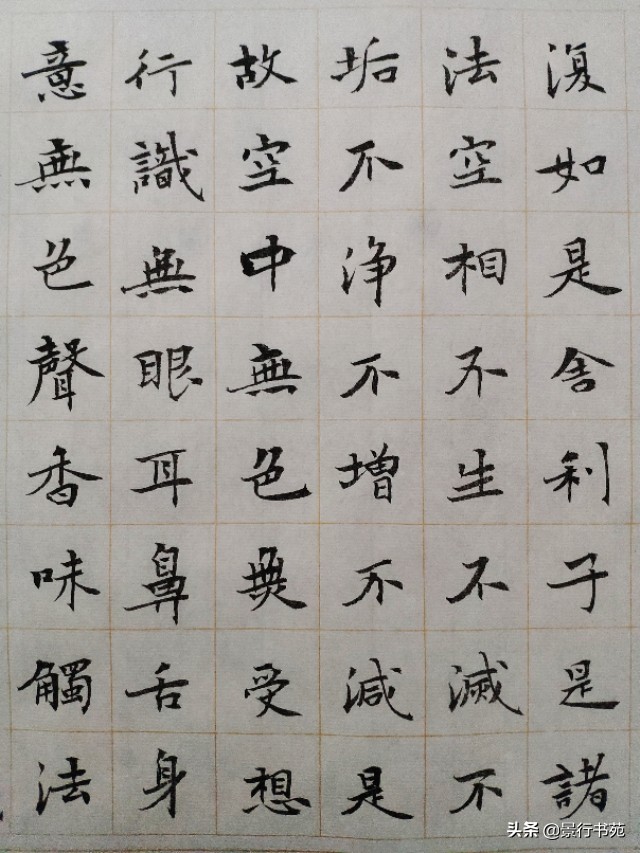 復如是舍利子是諸
法空相不生不滅不
垢不淨不增不減是
故空中無色無受想
行識無眼耳鼻舌身
意無色聲香味觸法
头条 @景行书苑